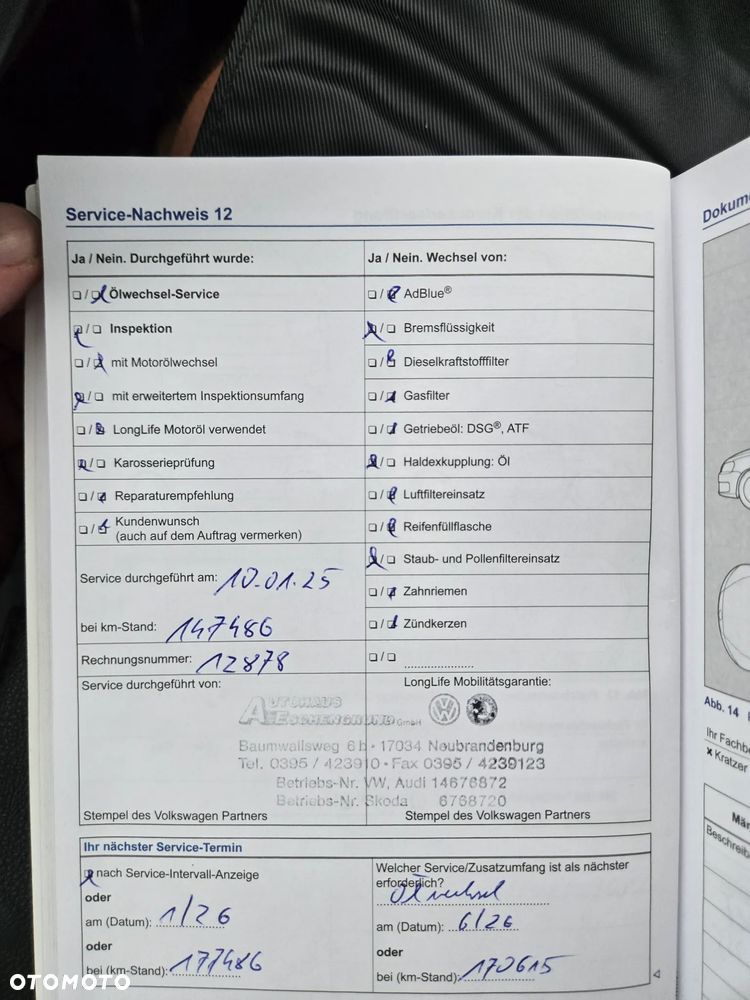 Service-Nachweis 12
Ja / Nein. Durchgeführt wurde:
Ölwechsel-Service
Inspektion
mit Motorölwechsel
mit erweitertem Inspektionsumfang
LongLife Motoröl verwendet
Karosserieprüfung
Reparaturempfehlung
Kundenwunsch
(auch auf dem Auftrag vermerken)
Service durchgeführt am: 10.01.25
bei km-Stand: 147486
Rechnungsnummer: 12878
Ja / Nein. Wechsel von:
AdBlue®
Bremsflüssigkeit
Dieselkraftstofffilter
Gasfilter
Getriebeöl: DSG®, ATF
Haldexkupplung: Öl
Luftfiltereinsatz
Reifenfüllflasche
Staub- und Pollenfiltereinsatz
Zahnriemen
Zündkerzen
Service durchgeführt von:
LongLife Mobilitätsgarantie:
AUTOHAUS
ESCHENGRUND GmbH
Baumwallsweg 6b • 17034 Neubrandenburg
Tel. 0395 / 423910 • Fax 0395 / 4239123
Betriebs-Nr. VW, Audi 14676872
Betriebs-Nr. Skoda 6768720
Stempel des Volkswagen Partners
Stempel des Volkswagen Partners
Ihr nächster Service-Termin
nach Service-Intervall-Anzeige
oder
am (Datum): 1/26
oder
bei (km-Stand): 177486
Welcher Service/Zusatzumfang ist als nächster
erforderlich?
Ölwechsel
am (Datum): 6/26
oder
bei (km-Stand): 170615
Abb. 14
Ihr Fachb
x Kratzer
Män
Beschreib
OTOMOTO